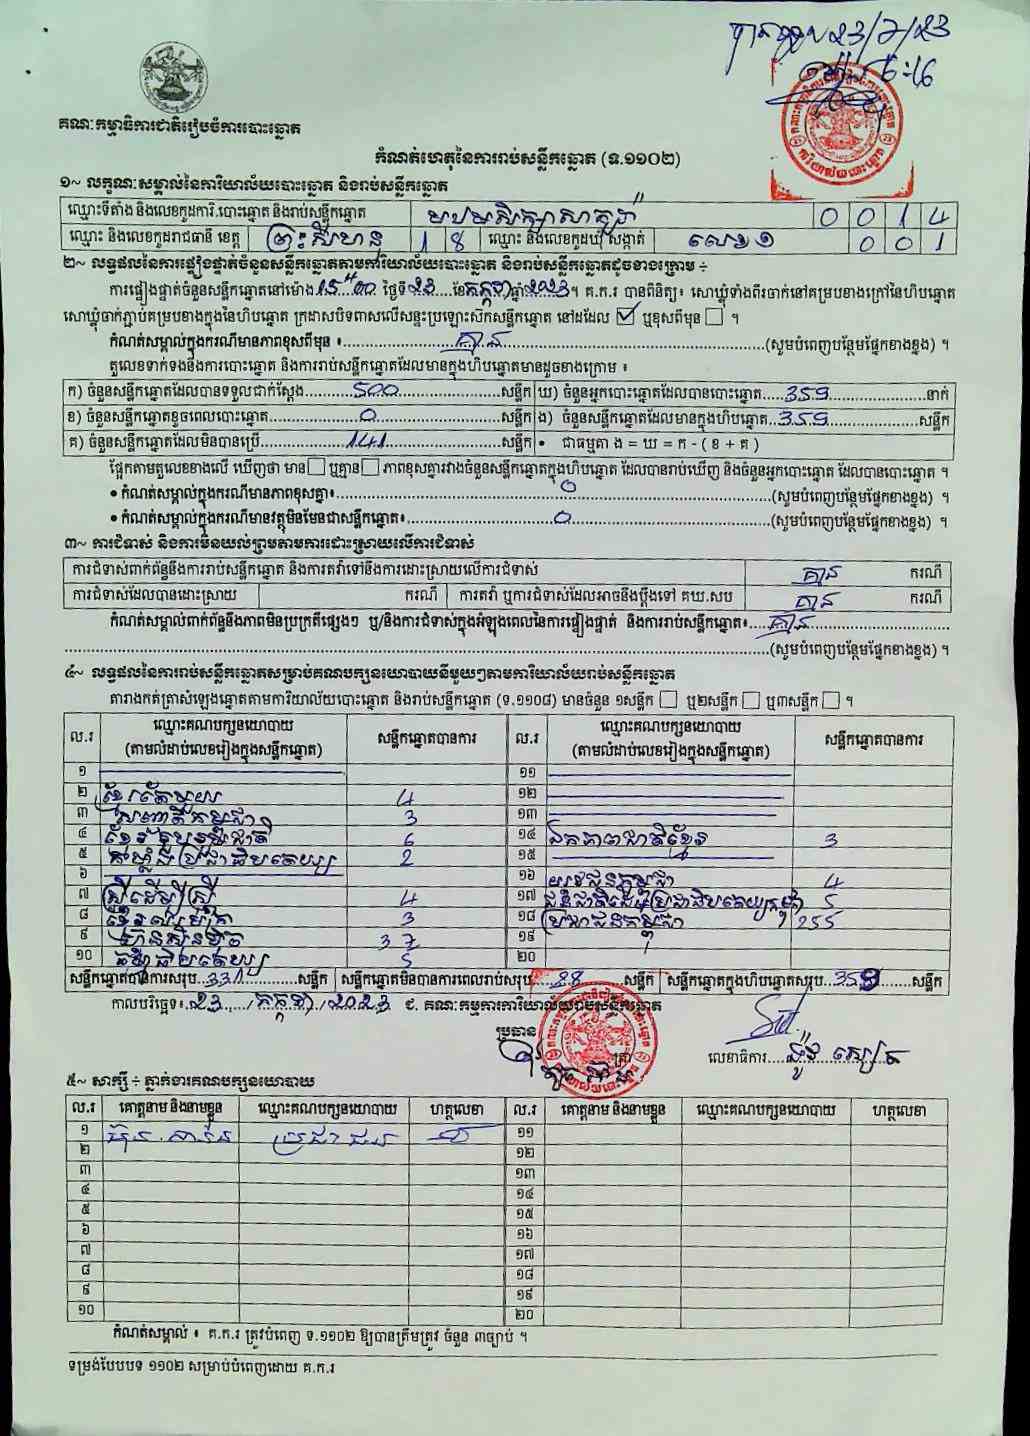 បានទទួល ២៣/7/២៣
គណៈកម្មាធិការជាតិរៀបចំការបោះឆ្នោត
កំណត់ហេតុនៃការរាប់សន្លឹកឆ្នោត (ទ.១១០២)
១~ លក្ខណៈសម្គាល់នៃការិយាល័យបោះឆ្នោត និងរាប់សន្លឹកឆ្នោត
ឈ្មោះទីតាំង និងលេខកូដការិ.បោះឆ្នោត និងរាប់សន្លឹកឆ្នោត 0 0 1 4
ឈ្មោះ និងលេខកូដរាជធានី ខេត្ត ព្រះសីហនុ 1 8 ឈ្មោះ និងលេខកូដឃុំ សង្កាត់ លេខ១ 0 0 1
២~ លទ្ធផលនៃការផ្ទៀងផ្ទាត់ចំនួនសន្លឹកឆ្នោតតាមការិយាល័យបោះឆ្នោត និងរាប់សន្លឹកឆ្នោតដូចខាងក្រោម ÷
ការផ្ទៀងផ្ទាត់ចំនួនសន្លឹកឆ្នោតនៅម៉ោង 15"00 ថ្ងៃទី ២៣ ខែ កក្កដា ឆ្នាំ ២០២៣ ។ គ.ក.រ បានពិនិត្យ៖ សោឃ្លុំទាំងពីរចាក់នៅគម្របខាងក្រៅនៃហិបឆ្នោត
សោឃ្លុំចាក់ភ្ជាប់គម្របខាងក្នុងនៃហិបឆ្នោត ក្រដាសបិទពាសលើសន្ទះប្រឡោះស៊កសន្លឹកឆ្នោត នៅដដែល ☑ ឬខុសពីមុន ☐ ។
កំណត់សម្គាល់ក្នុងករណីមានភាពខុសពីមុន ៖ គ្មាន (សូមបំពេញបន្ថែមផ្នែកខាងខ្នង) ។
តួលេខទាក់ទងនឹងការបោះឆ្នោត និងការរាប់សន្លឹកឆ្នោតដែលមានក្នុងហិបឆ្នោតមានដូចខាងក្រោម ៖
ក) ចំនួនសន្លឹកឆ្នោតដែលបានទទួលជាក់ស្តែង 500 សន្លឹក ឃ) ចំនួនអ្នកបោះឆ្នោតដែលបានបោះឆ្នោត 359 នាក់
ខ) ចំនួនសន្លឹកឆ្នោតខូចពេលបោះឆ្នោត 0 សន្លឹក ង) ចំនួនសន្លឹកឆ្នោតដែលមានក្នុងហិបឆ្នោត 359 សន្លឹក
គ) ចំនួនសន្លឹកឆ្នោតដែលមិនបានប្រើ 141 សន្លឹក • ជាធម្មតា ង = ឃ = ក - ( ខ + គ )
ផ្អែកតាមតួលេខខាងលើ ឃើញថា មាន ☐ ឬគ្មាន ☐ ភាពខុសគ្នារវាងចំនួនសន្លឹកឆ្នោតក្នុងហិបឆ្នោត ដែលបានរាប់ឃើញ និងចំនួនអ្នកបោះឆ្នោត ដែលបានបោះឆ្នោត ។
• កំណត់សម្គាល់ក្នុងករណីមានភាពខុសគ្នា៖ 0 (សូមបំពេញបន្ថែមផ្នែកខាងខ្នង) ។
• កំណត់សម្គាល់ក្នុងករណីមានវត្ថុមិនមែនជាសន្លឹកឆ្នោត៖ 0 (សូមបំពេញបន្ថែមផ្នែកខាងខ្នង) ។
៣~ ការជំទាស់ និងការមិនយល់ព្រមតាមការដោះស្រាយលើការជំទាស់
ការជំទាស់ពាក់ព័ន្ធនឹងការរាប់សន្លឹកឆ្នោត និងការតវ៉ាទៅនឹងការដោះស្រាយលើការជំទាស់ គ្មាន ករណី
ការជំទាស់ដែលបានដោះស្រាយ ករណី ការតវ៉ា ឬការជំទាស់ដែលអាចនឹងប្តឹងទៅ គឃ.សប គ្មាន ករណី
កំណត់សម្គាល់ពាក់ព័ន្ធនឹងភាពមិនប្រក្រតីផ្សេងៗ ឬ/និងការជំទាស់ក្នុងអំឡុងពេលនៃការផ្ទៀងផ្ទាត់ និងការរាប់សន្លឹកឆ្នោត៖ គ្មាន
(សូមបំពេញបន្ថែមផ្នែកខាងខ្នង) ។
៤~ លទ្ធផលនៃការរាប់សន្លឹកឆ្នោតសម្រាប់គណបក្សនយោបាយនីមួយៗតាមការិយាល័យរាប់សន្លឹកឆ្នោត
តារាងកត់ត្រាសំឡេងឆ្នោតតាមការិយាល័យបោះឆ្នោត និងរាប់សន្លឹកឆ្នោត (ទ.១១០៨) មានចំនួន ១សន្លឹក ☐ ឬ២សន្លឹក ☐ ឬ៣សន្លឹក ☐ ។
ល.រ ឈ្មោះគណបក្សនយោបាយ (តាមលំដាប់លេខរៀងក្នុងសន្លឹកឆ្នោត) សន្លឹកឆ្នោតបានការ ល.រ ឈ្មោះគណបក្សនយោបាយ (តាមលំដាប់លេខរៀងក្នុងសន្លឹកឆ្នោត) សន្លឹកឆ្នោតបានការ
១ ១១
២ ខ្មែរតែមួយ 4 ១២
៣ សញ្ជាតិកម្ពុជា 3 ១៣
៤ ខ្មែររួបរួមជាតិ 6 ១៤ ឯកភាពជាតិខ្មែរ 3
៥ កម្លាំងប្រជាធិបតេយ្យ 2 ១៥
៦ ១៦ យុវជនកម្ពុជា 4
៧ ស្ត្រីដើម្បីស្ត្រី 4 ១៧ ជនជាតិដើមប្រជាធិបតេយ្យកម្ពុជា 5
៨ 3 ១៨ ប្រជាជនកម្ពុជា 255
៩ ហ៊្វុនស៊ិនប៉ិច 37 ១៩
១០ ធម្មាធិបតេយ្យ 5 ២០
សន្លឹកឆ្នោតបានការសរុប 331 សន្លឹក សន្លឹកឆ្នោតមិនបានការពេលរាប់សរុប 28 សន្លឹក សន្លឹកឆ្នោតក្នុងហិបឆ្នោតសរុប 359 សន្លឹក
កាលបរិច្ឆេទ៖ ២៣ / កក្កដា / ២០២៣ ជ. គណៈកម្មការការិយាល័យរាប់សន្លឹកឆ្នោត
ប្រធាន
លេខាធិការ
៥~ សាក្សី ÷ ភ្នាក់ងារគណបក្សនយោបាយ
ល.រ គោត្តនាម និងនាមខ្លួន ឈ្មោះគណបក្សនយោបាយ ហត្ថលេខា ល.រ គោត្តនាម និងនាមខ្លួន ឈ្មោះគណបក្សនយោបាយ ហត្ថលេខា
១ ប្រជាជន ១១
២ ១២
៣ ១៣
៤ ១៤
៥ ១៥
៦ ១៦
៧ ១៧
៨ ១៨
៩ ១៩
១០ ២០
កំណត់សម្គាល់ ៖ គ.ក.រ ត្រូវបំពេញ ទ.១១០២ ឱ្យបានត្រឹមត្រូវ ចំនួន ៣ច្បាប់ ។
ទម្រង់បែបបទ ១១០២ សម្រាប់បំពេញដោយ គ.ក.រ